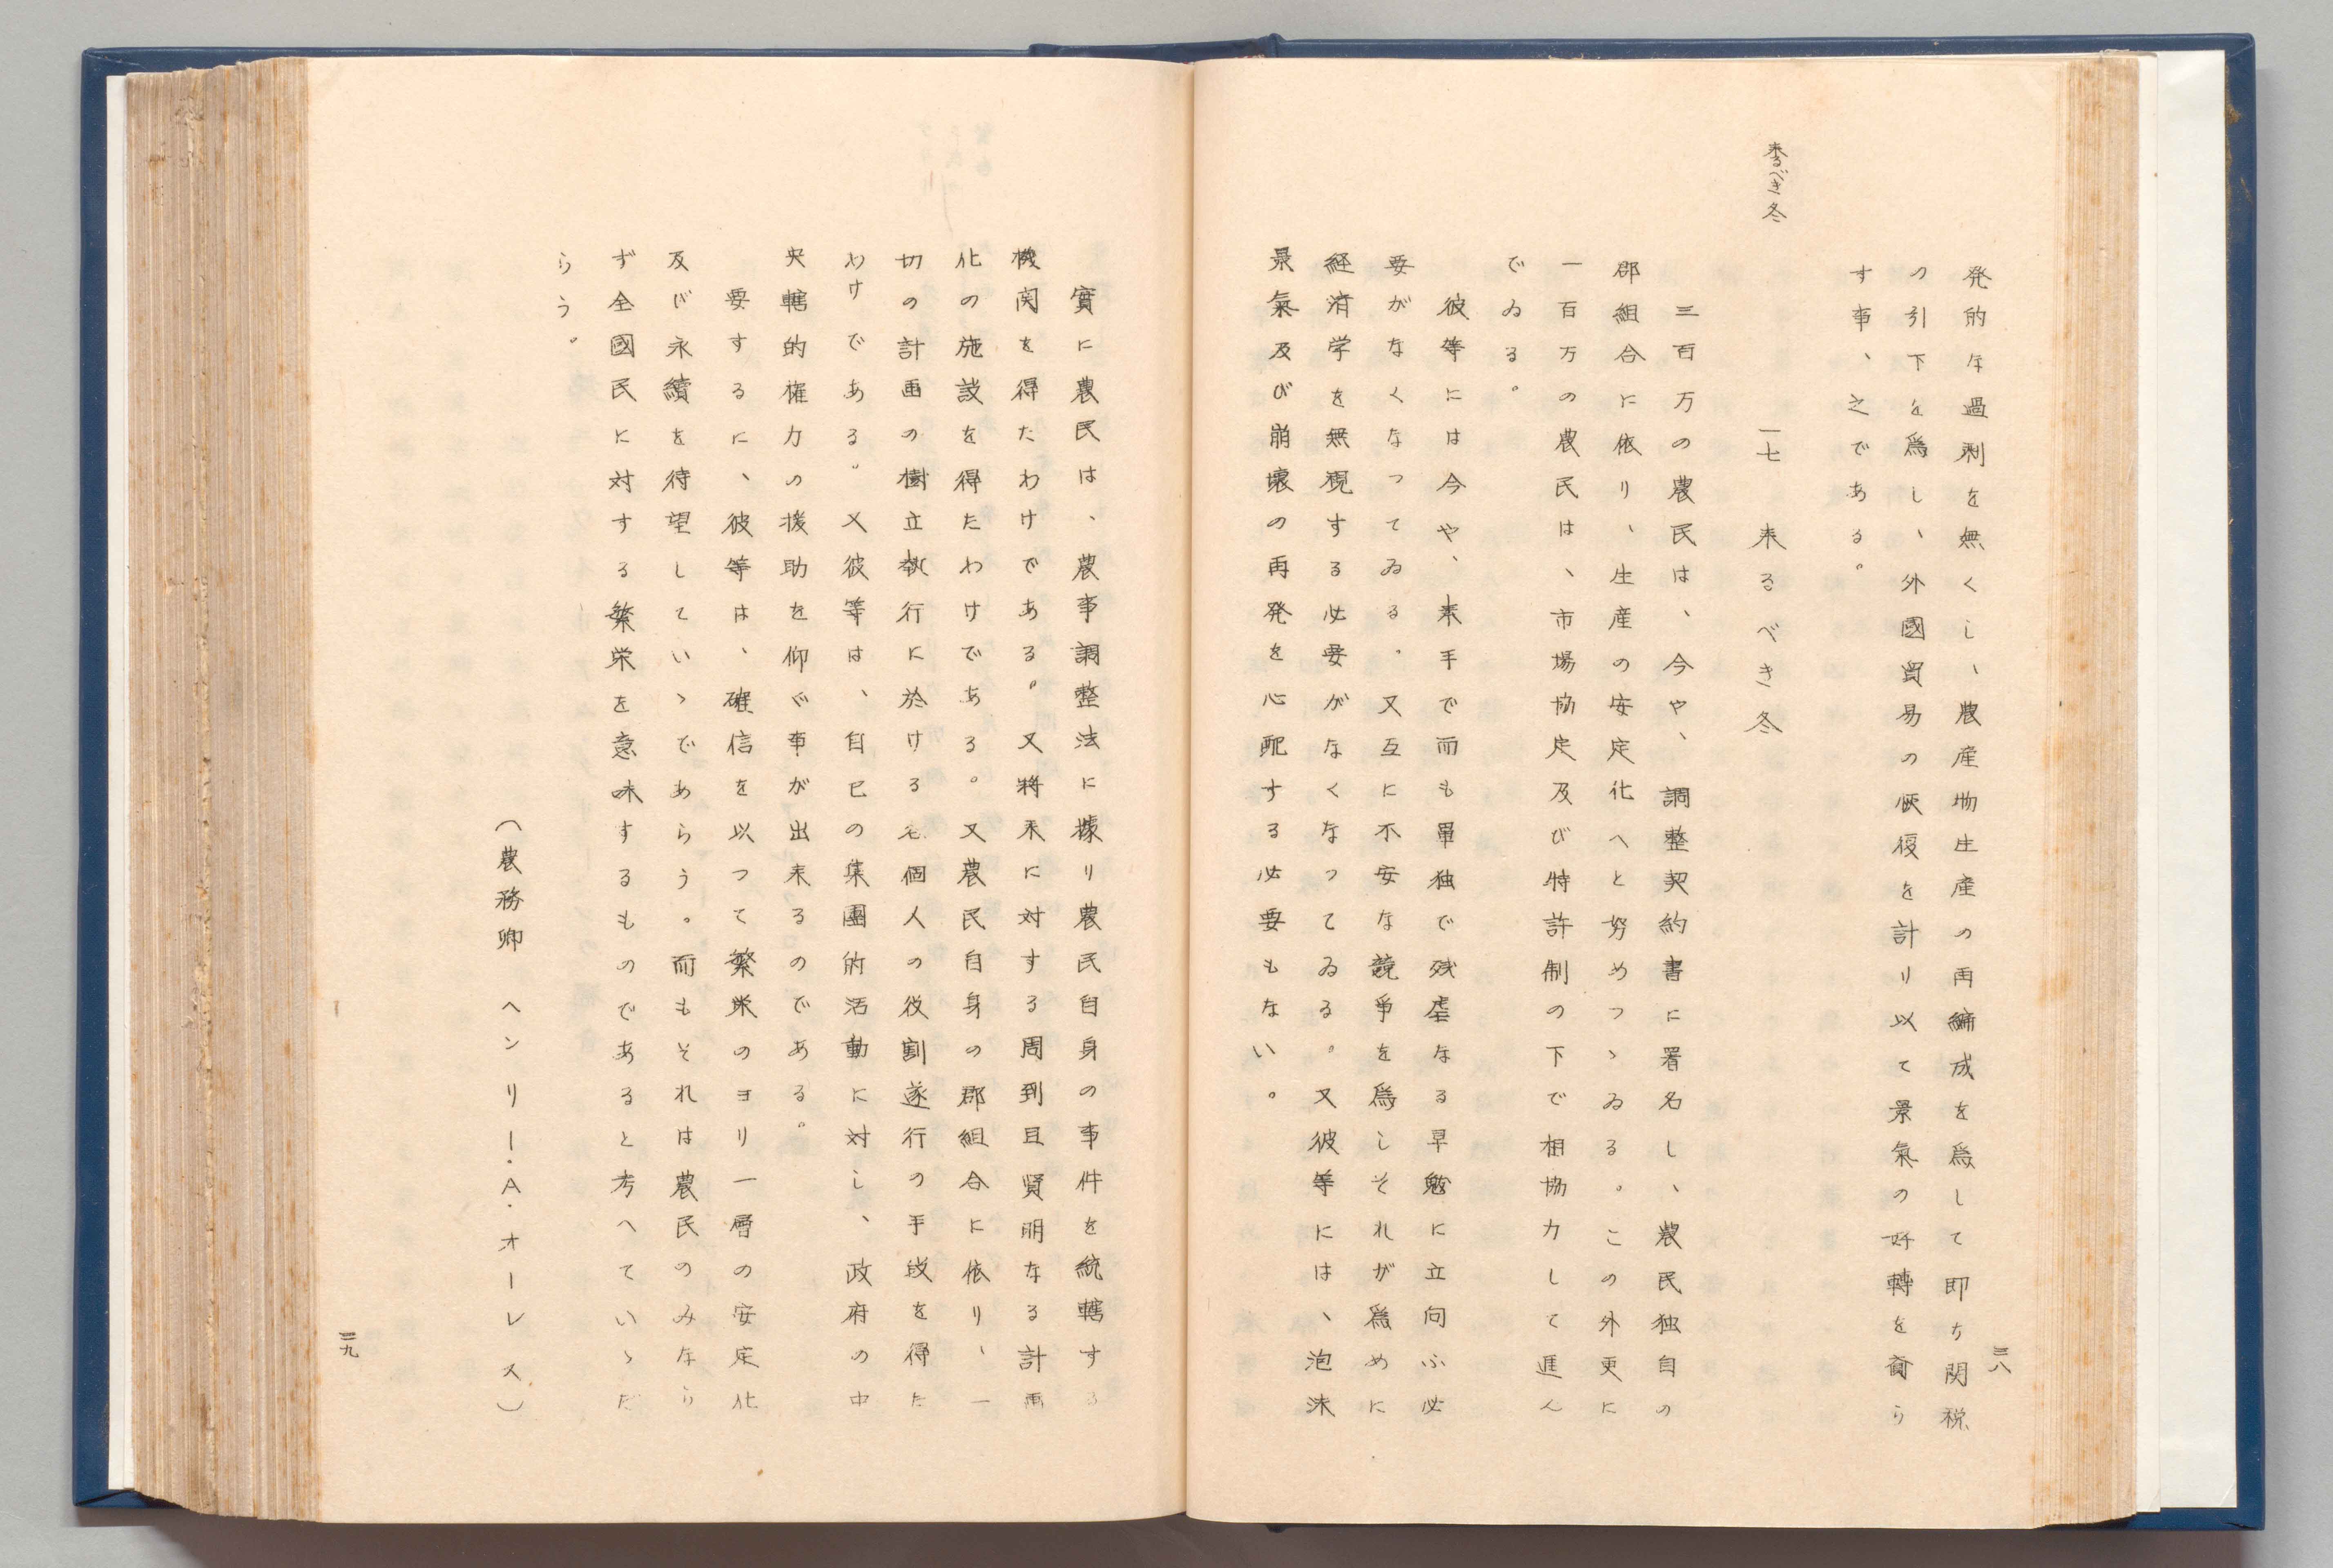 三八
発的な過剰を無くし、農産物生産の再編成を為して即ち関税
の引下を爲し、外國貿易の恢復を計り以て景氣の好轉を齎ら
す事、之である。
来るべき冬
一七　来るべき冬
三百万の農民は、今や、調整契約書に署名し、農民独自の
郡組合に依り、生産の安定化へと努めつゝゐる。この外更に
一百万の農民は、市場協定及び特許制の下で相協力して進ん
でゐる。
彼等には今や、素手で而も單独で残虐なる旱魃に立向ふ必
要がなくなつてゐる。又互に不安な競爭を爲しそれが爲めに
経済学を無視する必要がなくなつてゐる。又彼等には、泡沫
景氣及び崩壊の再発を心配する必要もない。
實に農民は、農事調整法に據り農民自身の事件を統轄する
機関を得たわけである。又將来に対する周到且賢明なる計画
化の施設を得たわけである。又農民自身の郡組合に依り、一
切の計画の樹立執行に於ける各個人の役割遂行の手段を得た
わけである。又彼等は、自己の集團的活動に対し、政府の中
央轄的権力の援助を仰ぐ事が出来るのである。
要するに、彼等は、確信を以つて繁栄のヨリ一層の安定化
及び永續を待望していゝであらう。而もそれは農民のみなら
ず全國民に対する繁栄を意味するものであると考へていゝだ
らう。
（農務卿　ヘンリー・A・オーレス）
三九